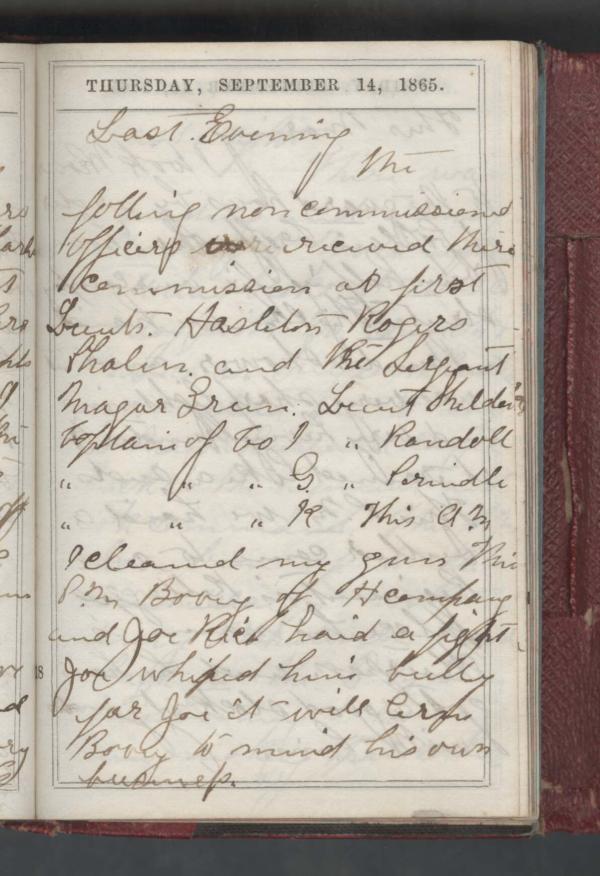 THURSDAY, SEPTEMBER 14, 1865.
Last Evening
the
folling non commissiond
officers received there
commission as first
Lieuts. Haselton Rogers
Phalin. and the Sergeant
Magar Lieut
Captain of Co I " Randoll
" " " G "
" " " K This A.m
I cleaned my gun This
P.m Bovey of H company
and Joe Rice haid a fight
Joe whiped him bully
for Joe it will lern
Bovey to mind his own
business.